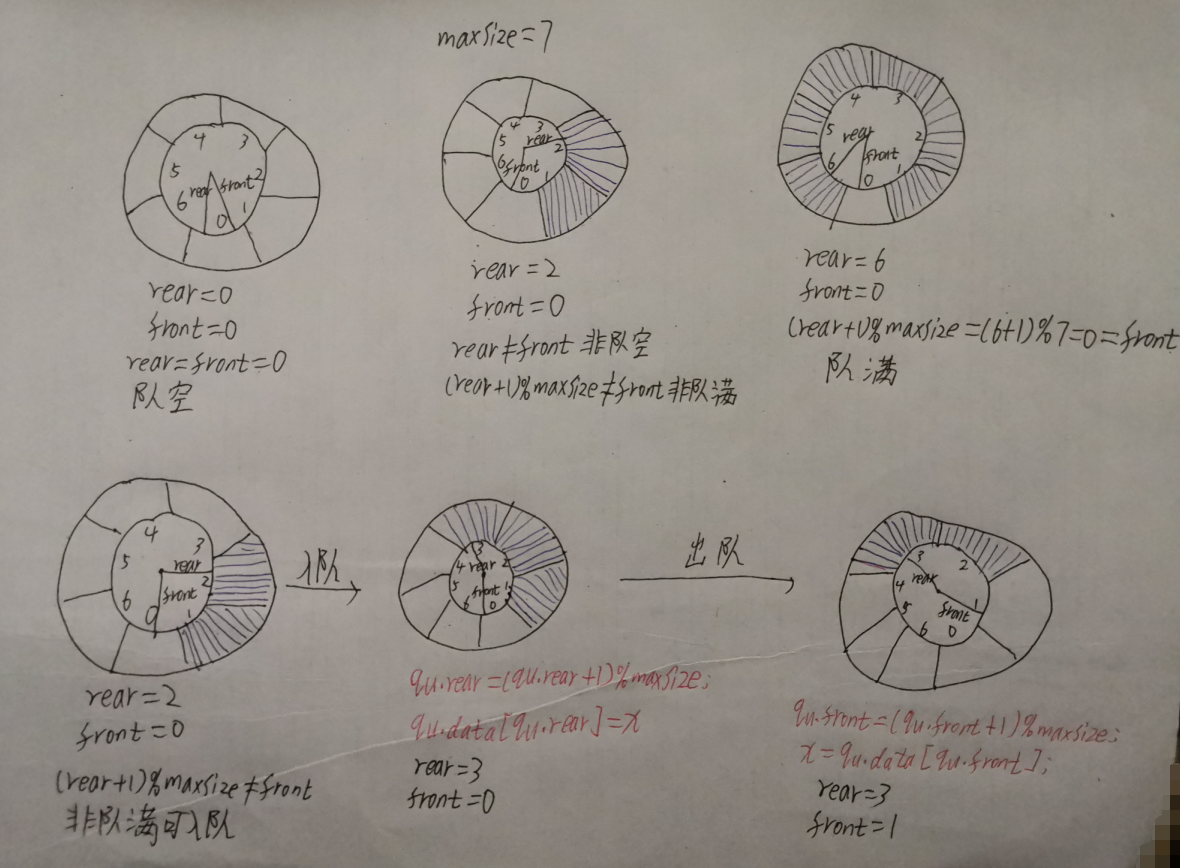 maxsize=7
4 3
5 2
rear front
6 0 1
rear=0
front=0
rear=front=0
队空
4 3
5 rear 2
6 front
0 1
rear=2
front=0
rear≠front 非队空
(rear+1)%maxsize≠front非队满
4 3
5 2
rear
front
6 0 1
rear=6
front=0
(rear+1)%maxsize=(6+1)%7=0=front
队满
4 3
5 rear 2
6 front
0 1
rear=2
front=0
(rear+1)%maxsize≠front
非队满可入队
入队
3
4 rear 2
5 front 1
6 0
qu.rear=(qu.rear+1)%maxsize;
qu.data[qu.rear]=x
rear=3
front=0
出队
3 2
4 rear
5 front 1
6 0
qu.front=(qu.front+1)%maxsize;
x=qu.data[qu.front];
rear=3
front=1